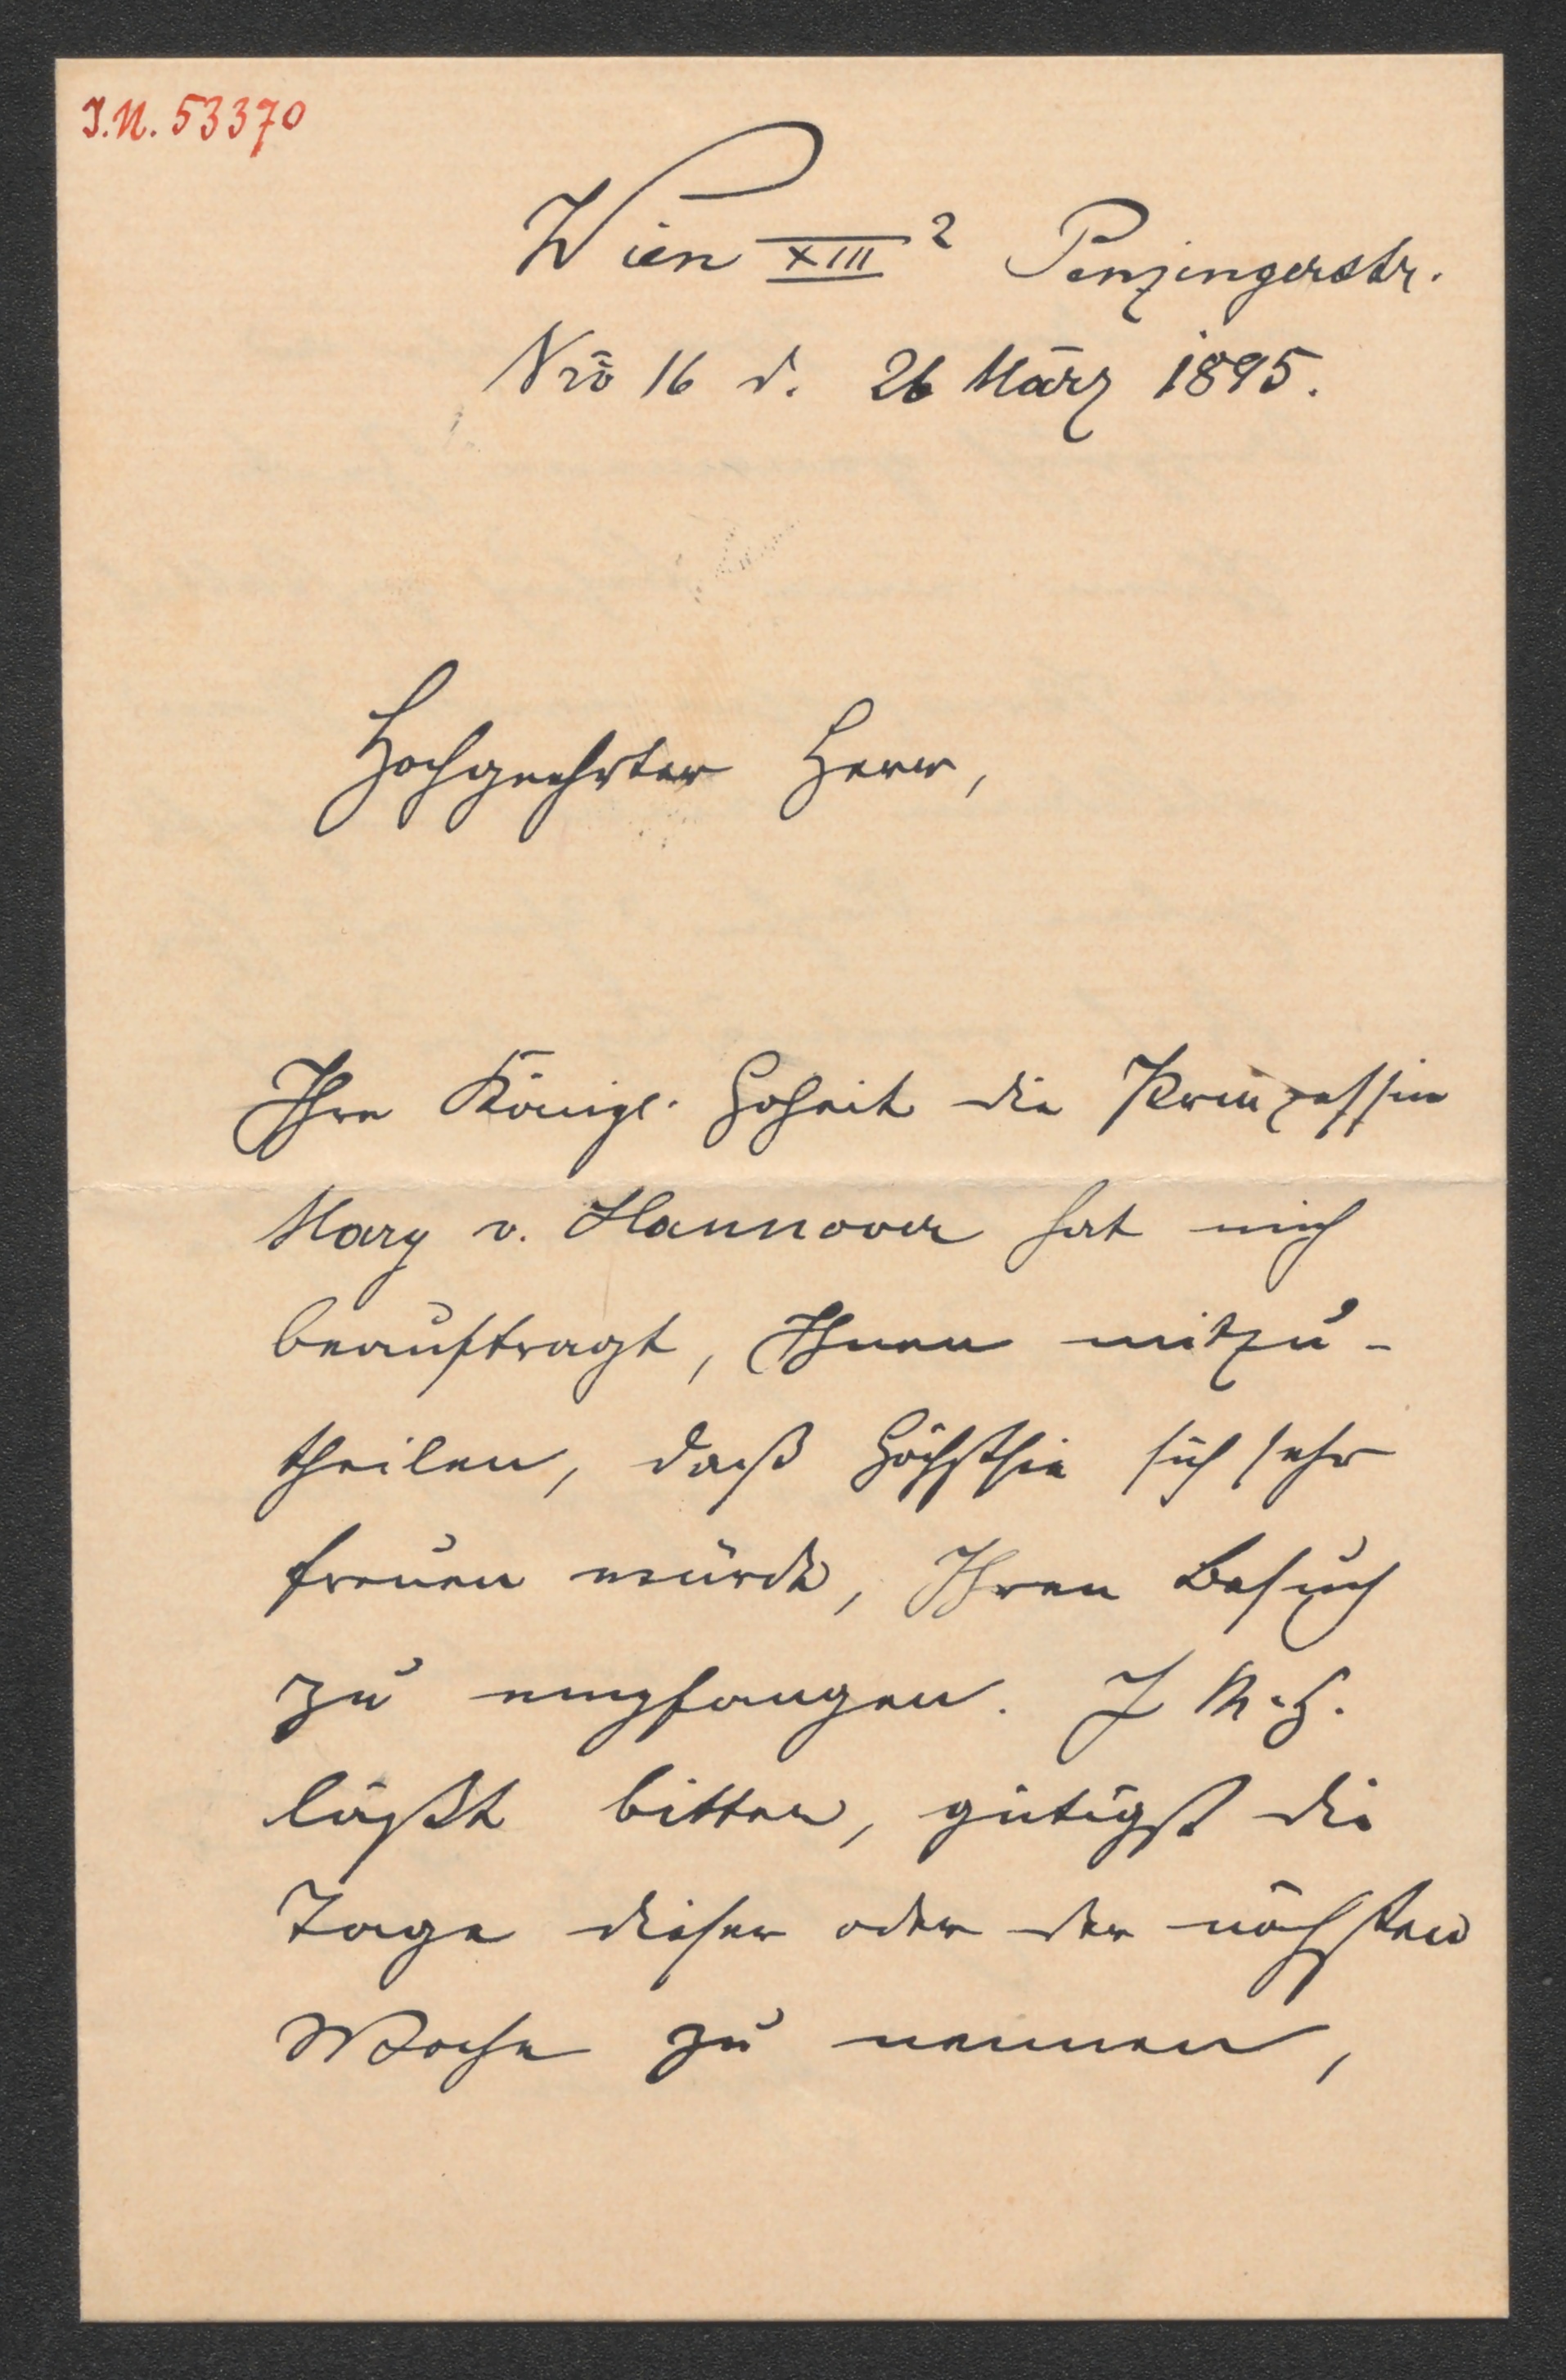 I.N. 53370
Wien XIII 2 Penzingerstr.
Nro 16 d. 26 März 1895.
Hochgeehrter Herr,
Ihre Königl. Hoheit die Prinzessin
Mary v. Hannover hat mich
beauftragt, Ihnen mitzu-
theilen, daß Höchstsie sich sehr
freuen würde, Ihren Besuch
zu empfangen. I K. H.
läßt bitten, gütigst die
Tage dieser oder der nächsten
Woche zu nennen,